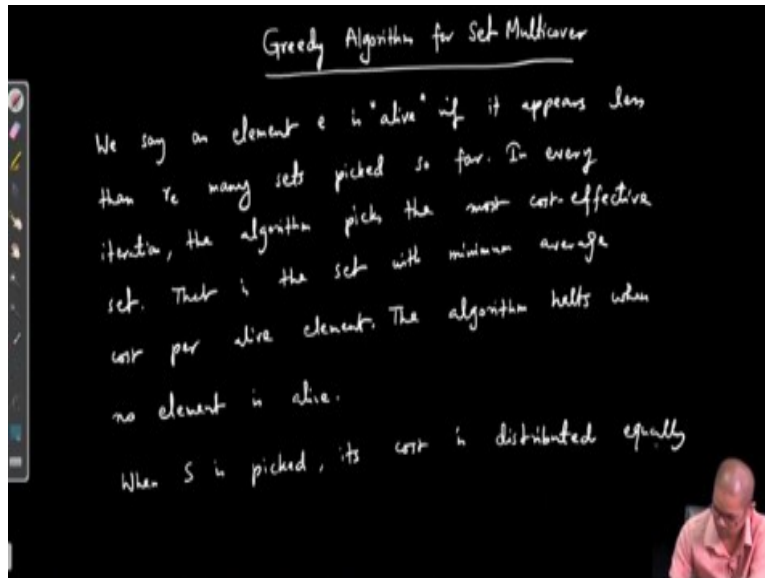 Greedy Algorithm for Set Multicover
We say an element e is "alive" if it appears less
than re many sets picked so far. In every
iteration, the algorithm picks the most cost-effective
set. That is the set with minimum average
cost per alive element. The algorithm halts when
no element is alive.
When S is picked, its cost is distributed equally